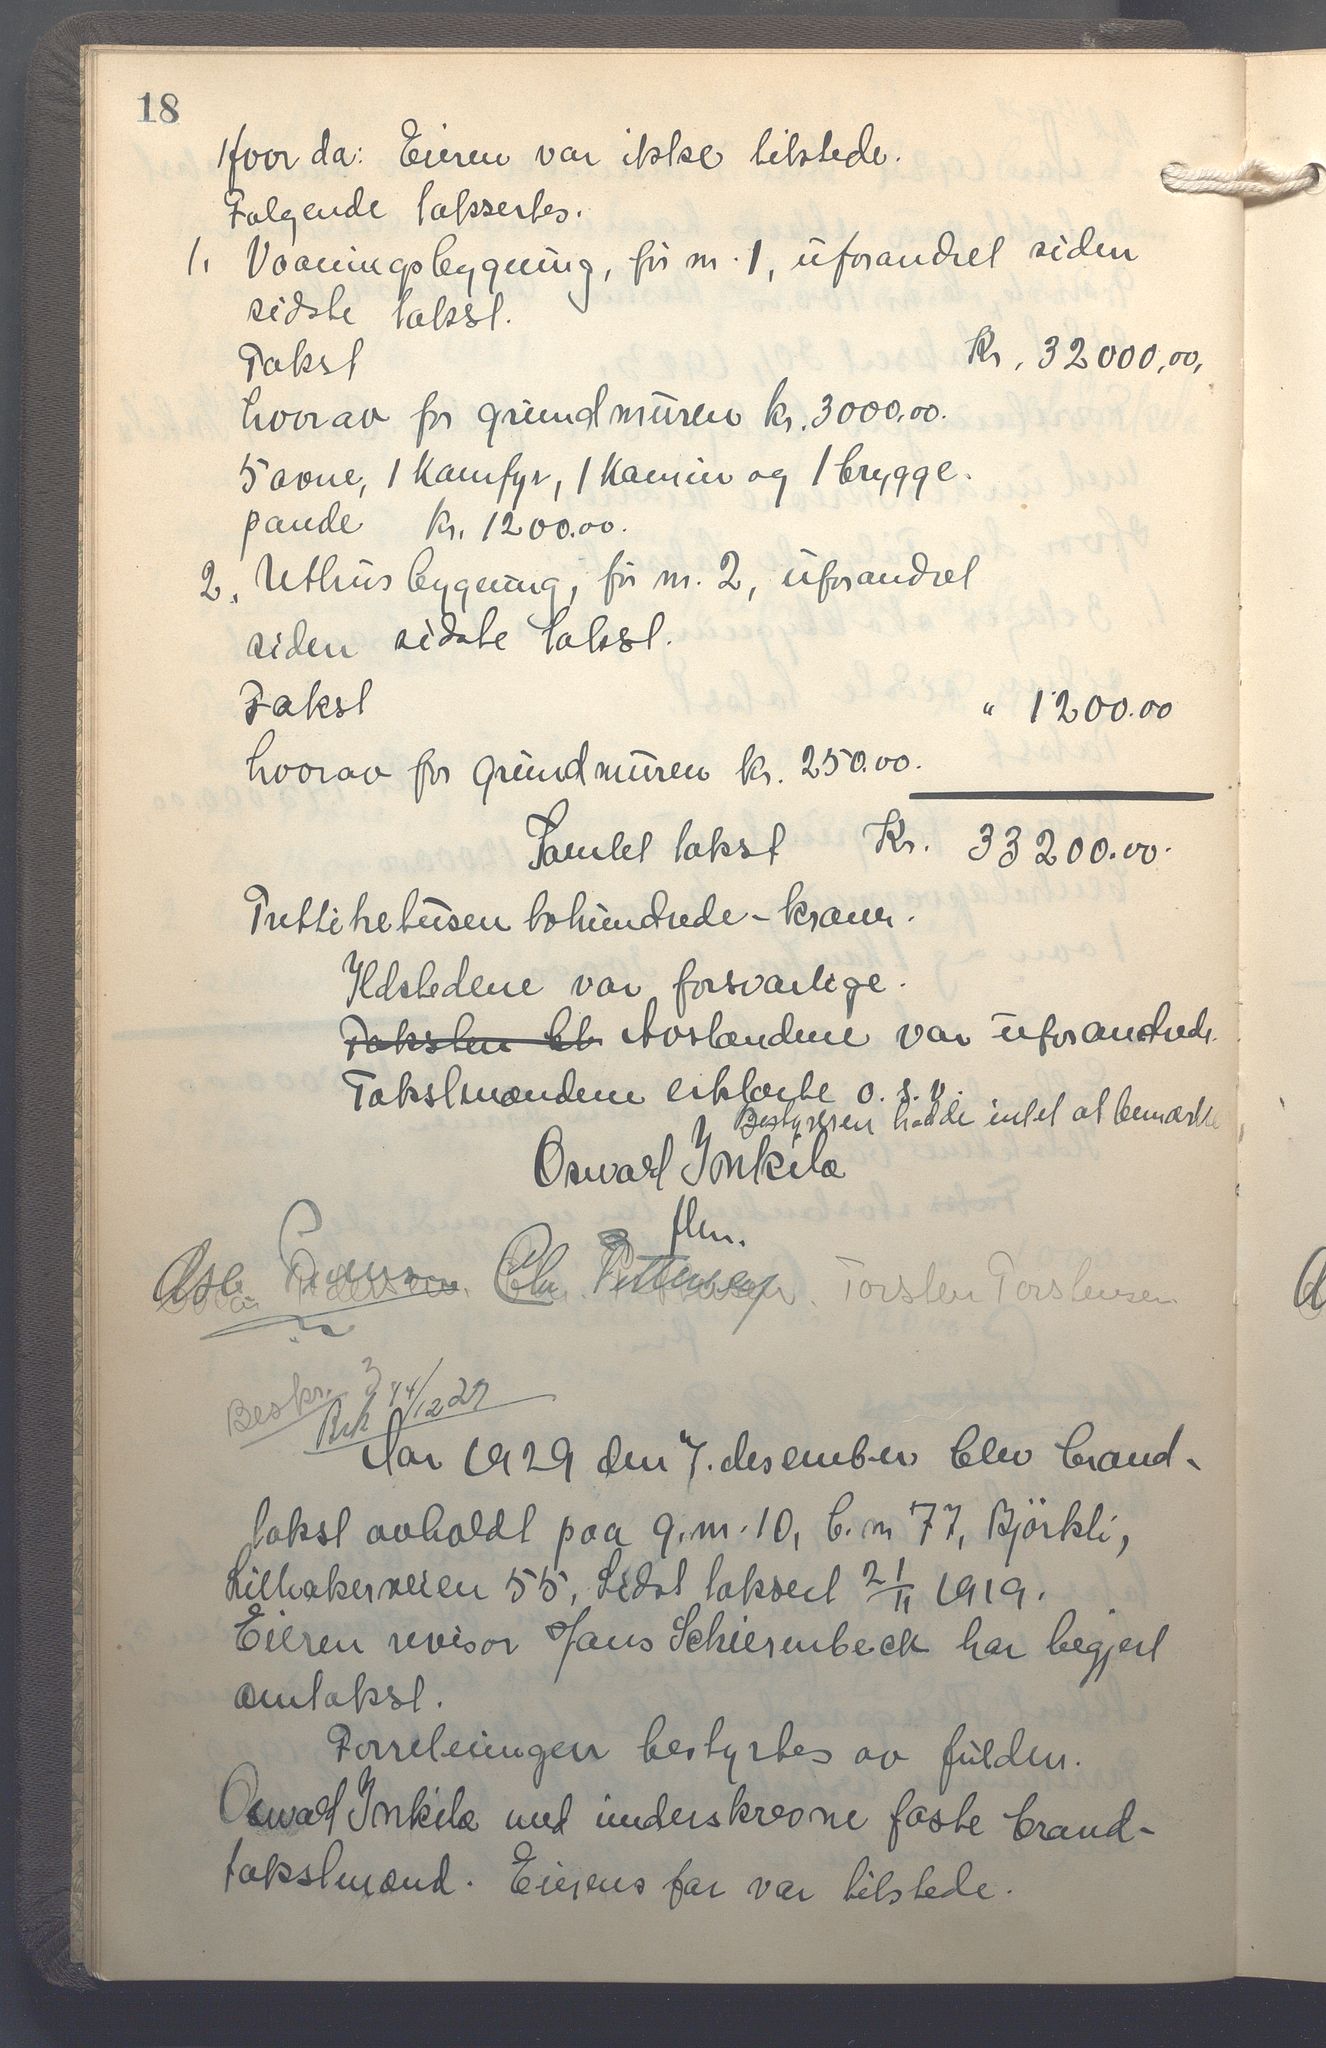 18
Hvor da: Eieren var ikke tilstede.
Følgende taksertes.
1. Vaaningsbygning, før nr. 1, uforandret siden
sidste takst.
Takst Kr. 32000,00,
hvorav for grundmuren kr. 3000.00.
5 ovne, 1 Komfyr, 1 Kamin og 1 brygge-
pande kr. 1200.00.
2. Uthusbygning, før nr. 2, uforandret
siden sidste takst.
Takst " 1200.00
hvorav for grundmuren kr. 250.00.
Samlet takst Kr. 33200.00.
Trettitretusen tohundrede-kroner.
Ildstedene var forsvarlige.
Taksten bl. Avstandene var uforandrede.
Takstmændene erklærte o. s. v.
Bestyreren hadde intet at bemærke
Osvald Inkila
flm.
Chr. Pettersen. Torsten Torstensen
Beskr. 3
14/12 29
Aar 1929 den 7. desember blev brand-
takst avholdt paa g. nr. 10, b. nr 77, Björkli,
Lilleakerveien 55, Sidst taksert 21/11 1919.
Eieren revisor Hans Schierenbeck har begjert
omtakst.
Forretningen bestyrtes av fuldm.
Osvald Inkila med underskrevne faste brand-
takstmænd. Eierens far var tilstede.